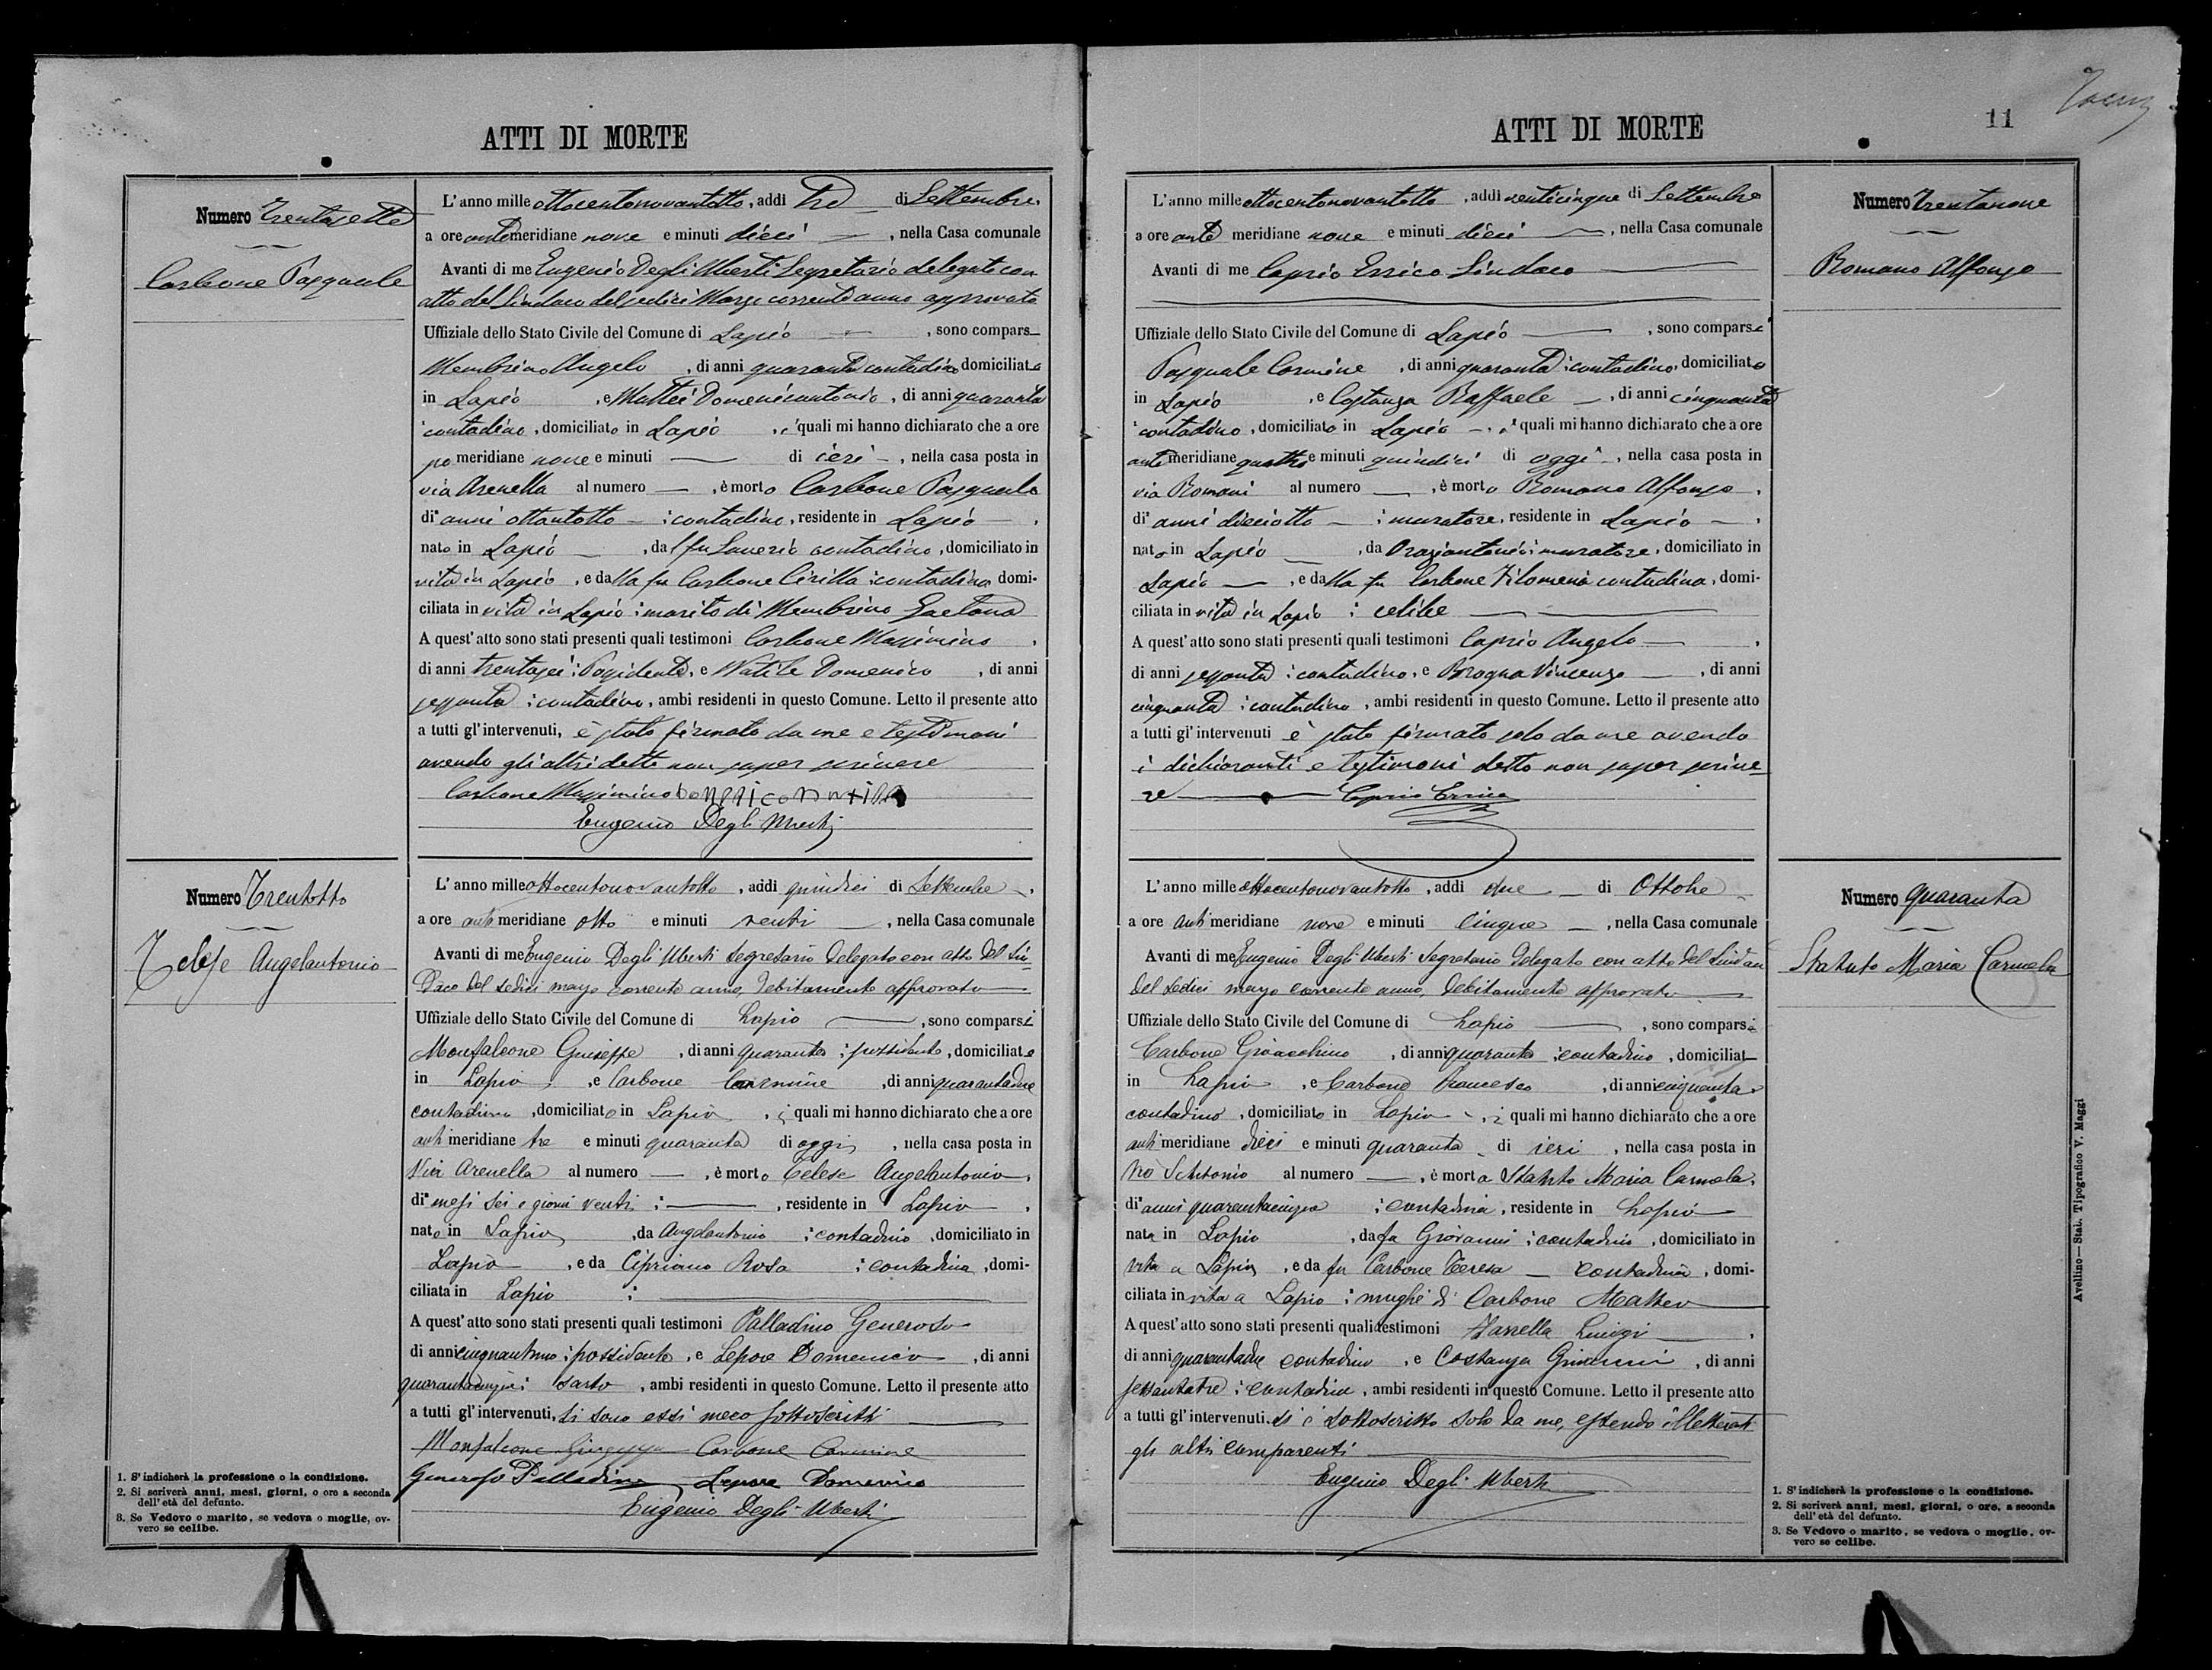 ATTI DI MORTE
Numero Trentasette
Carbone Pasquale
L'anno mille ottocentonovantotto, addì tre di Settembre,
a ore antemeridiane nove e minuti dieci, nella Casa comunale
Avanti di me Eugenio Degli Uberti Segretario delegato con
atto del Sindaco del sedici Marzo corrente anno approvato
Uffiziale dello Stato Civile del Comune di Lapio, sono compars
Membrino Angelo, di anni quaranta contadino domiciliato
in Lapio, e Mattei Domenicantonio, di anni quaranta
contadino, domiciliato in Lapio, i quali mi hanno dichiarato che a ore
po meridiane nove e minuti — di ieri, nella casa posta in
via Arenella al numero —, è morto Carbone Pasquale
di anni ottantotto : contadino, residente in Lapio,
nato in Lapio, dal fu Saverio contadino, domiciliato in
vita in Lapio, e dalla fu Carbone Cirilla : contadina domi-
ciliata in vita in Lapio : marito di Membrino Gaetana
A quest'atto sono stati presenti quali testimoni Carbone Massimino,
di anni trentasei : Possidente, e Natile Domenico, di anni
sessanta : contadino, ambi residenti in questo Comune. Letto il presente atto
a tutti gl'intervenuti, è stato firmato da me e testimoni
avendo gli altri detto non saper scrivere
Carbone Massimino
Eugenio Degli Uberti
Numero Trentotto
Telese Angelantonio
L'anno mille ottocentonovantotto, addì quindici di Settembre,
a ore antimeridiane otto e minuti venti, nella Casa comunale
Avanti di me Eugenio Degli Uberti segretario delegato con atto del Sin-
daco del sedici marzo corrente anno, debitamente approvato
Uffiziale dello Stato Civile del Comune di Lapio, sono comparsi
Monfalcone Giuseppe, di anni quaranta : possidente, domiciliato
in Lapio, e Carbone Carmine, di anni quarantadue
contadino, domiciliato in Lapio, i quali mi hanno dichiarato che a ore
anti meridiane tre e minuti quaranta di oggi, nella casa posta in
Via Arenella al numero —, è morto Telese Angelantonio,
di mesi sei e giorni venti : —, residente in Lapio,
nato in Lapio, da Angelantonio : contadino, domiciliato in
Lapio, e da Cipriano Rosa : contadina, domi-
ciliata in Lapio :
A quest'atto sono stati presenti quali testimoni Palladino Generoso
di anni cinquantuno : possidente, e Lepore Domenico, di anni
quarantacinque : sarto, ambi residenti in questo Comune. Letto il presente atto
a tutti gl'intervenuti, si sono essi meco sottoscritti
Monfalcone Giuseppe Carbone Carmine
Generoso Palladino Lepore Domenico
Eugenio Degli Uberti
1. S'indicherà la professione o la condizione.
2. Si scriverà anni, mesi, giorni, o ore a seconda
dell'età del defunto.
3. Se Vedovo o marito, se vedova o moglie, ov-
vero se celibe.
ATTI DI MORTE
11
L'anno mille ottocentonovantotto, addì venticinque di Settembre
a ore ante meridiane nove e minuti dieci, nella Casa comunale
Avanti di me Caprio Errico Sindaco
Uffiziale dello Stato Civile del Comune di Lapio, sono comparsi
Pasquale Carmine, di anni quaranta : contadino, domiciliato
in Lapio, e Costanza Raffaele, di anni cinquanta
contadino, domiciliato in Lapio, i quali mi hanno dichiarato che a ore
ante meridiane quattro e minuti quindici di oggi, nella casa posta in
via Romani al numero —, è morto Romano Alfonso,
di anni diciotto : muratore, residente in Lapio,
nato in Lapio, da Oraziantonio : muratore, domiciliato in
Lapio, e dalla fu Carbone Filomena contadina, domi-
ciliata in vita in Lapio : celibe
A quest'atto sono stati presenti quali testimoni Caprio Angelo,
di anni sessanta : contadino, e Brogna Vincenzo, di anni
cinquanta : contadino, ambi residenti in questo Comune. Letto il presente atto
a tutti gl'intervenuti è stato firmato solo da me avendo
i dichiaranti e testimoni detto non saper scrive-
re Caprio Errico
Numero Trentanove
Romano Alfonso
L'anno mille ottocentonovantotto, addì due di Ottobre
a ore antimeridiane nove e minuti cinque, nella Casa comunale
Avanti di me Eugenio Degli Uberti Segretario delegato con atto del Sindaco
del sedici marzo corrente anno, debitamente approvato
Uffiziale dello Stato Civile del Comune di Lapio, sono comparsi
Carbone Gioacchino, di anni quaranta : contadino, domiciliat
in Lapio, e Carbone Francesco, di anni cinquanta
contadino, domiciliato in Lapio, i quali mi hanno dichiarato che a ore
anti meridiane dieci e minuti quaranta di ieri, nella casa posta in
al numero —, è morta Statuto Maria Carmela,
di anni quarantacinque : contadina, residente in Lapio
nata in Lapio, da fu Giovanni : contadino, domiciliato in
vita a Lapio, e da fu Carbone Teresa — contadina, domi-
ciliata in vita a Lapio : moglie di Carbone Matteo
A quest'atto sono stati presenti quali testimoni Luigi,
di anni quarantadue contadino, e Costanza Giovanni, di anni
sessantatre : contadino, ambi residenti in questo Comune. Letto il presente atto
a tutti gl'intervenuti. si è sottoscritto solo da me, essendo illetterati
gli altri comparenti
Eugenio Degli Uberti
Numero quaranta
Statuto Maria Carmela
1. S'indicherà la professione o la condizione.
2. Si scriverà anni, mesi, giorni, o ore, a seconda
dell'età del defunto.
3. Se Vedovo o marito, se vedova o moglie, ov-
vero se celibe.
Avellino—Stab. Tipografico V. Maggi